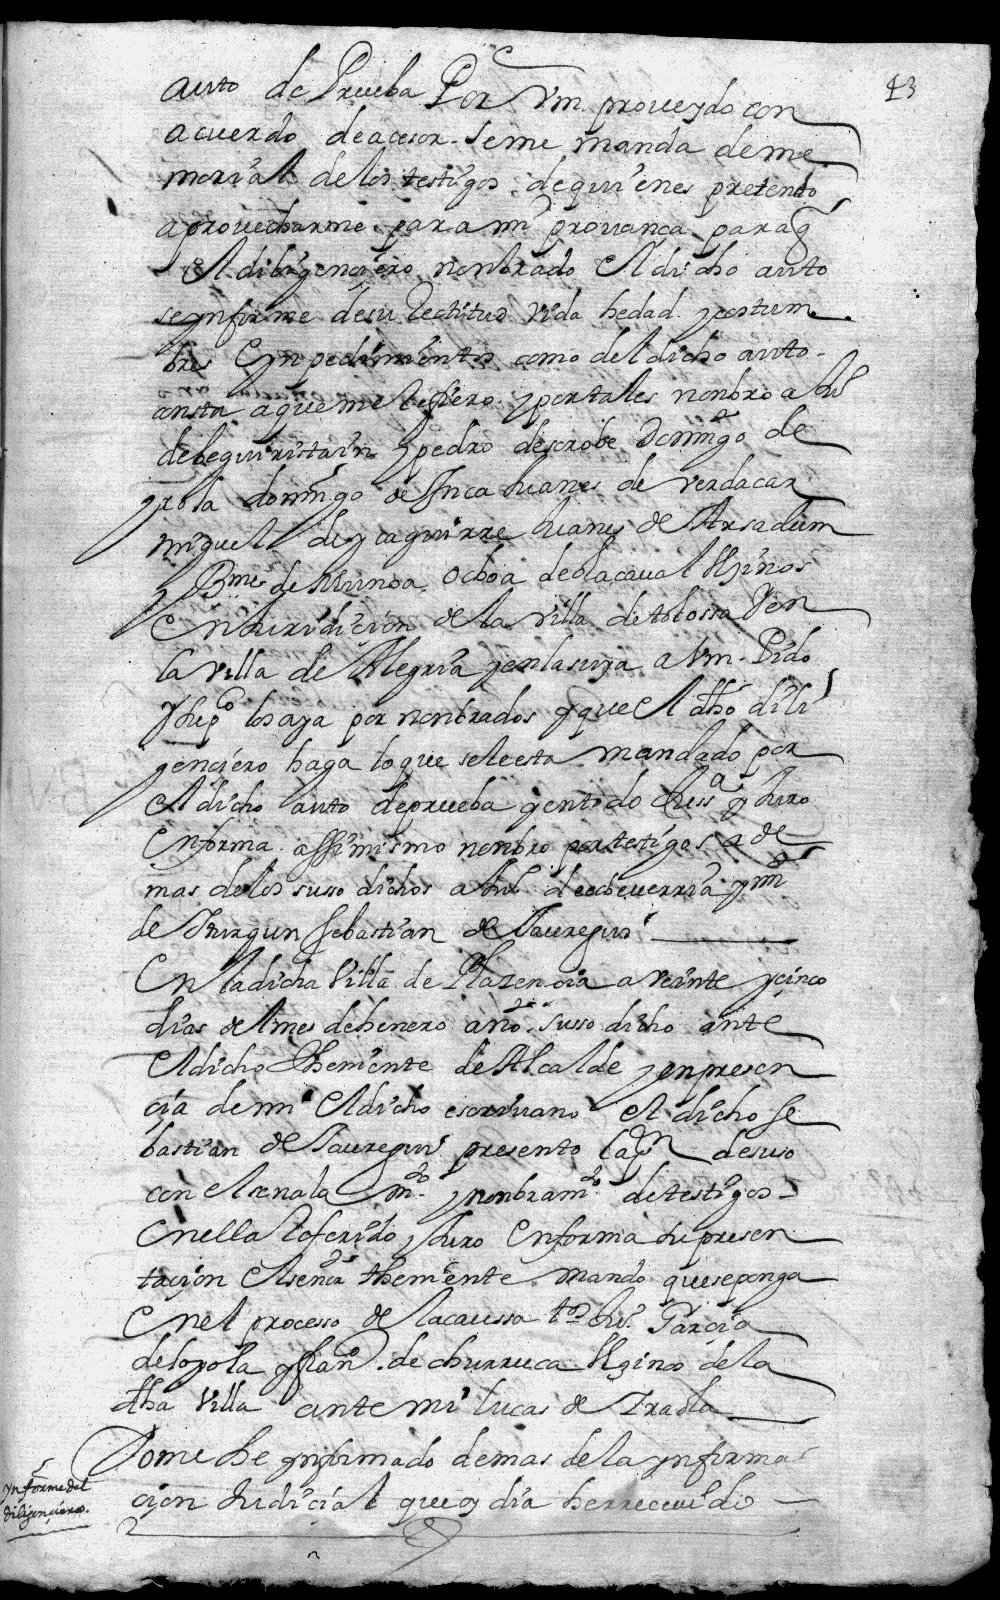 43
auto de Prueba Por Vm. proueydo con
acuerdo de acesor. se me manda de me
morial de los testigos de quienes pretendo
aprouecharme para mi prouança para q
El diligenciero nonbrado El dicho auto
se ynforme de su Rectitud vida hedad y costum
bres En pedimiento como del dicho auto
consta a que me Refiero y por tales nonbro a
de beguiristain y pedro de scrobe Domingo de
yrola domingo de Ynca Juanes de verdacar
miguel de ycaguirre Juanes de Arsadum
y Bme de Munoa, Ochoa de olacaual Vezinos
En Jurisdicion de la villa de tolossa Y en
la Villa de Alegria y en la suya a Vm. Pido
y sup.co los aya por nonbrados y que El dho dili
genciero haga lo que se le esta mandado por
El dicho auto de prueba y en todo Juss.a y Juro
En forma. assimismo nonbro por testigos a de
mas de los suso dichos a de echeuerria y mi
de Yurgun Sebastian de Jauregui
En la dicha Villa de Plazencia a veinte y cinco
dias del mes de henero año suso dicho ante
El dicho Theniente de Alcalde y en presen
cia de mi El dicho escriuano El dicho Se
bastian de Jauregui presento la de suso
con El senala m.to y nonbram.to de testigos
En ella Referido y Juro En forma su presen
tacion El señor theniente mando que se ponga
En el proceso de la caussa t.os Garcia
de loyola y fran.co de churruca Vezinos de la
dha Villa ante mi lucas de Yraola
Yo me he ynformado demas de la ynforma
cion Judicial que oy dia he rreceuido
ynforme del
diligenciero.